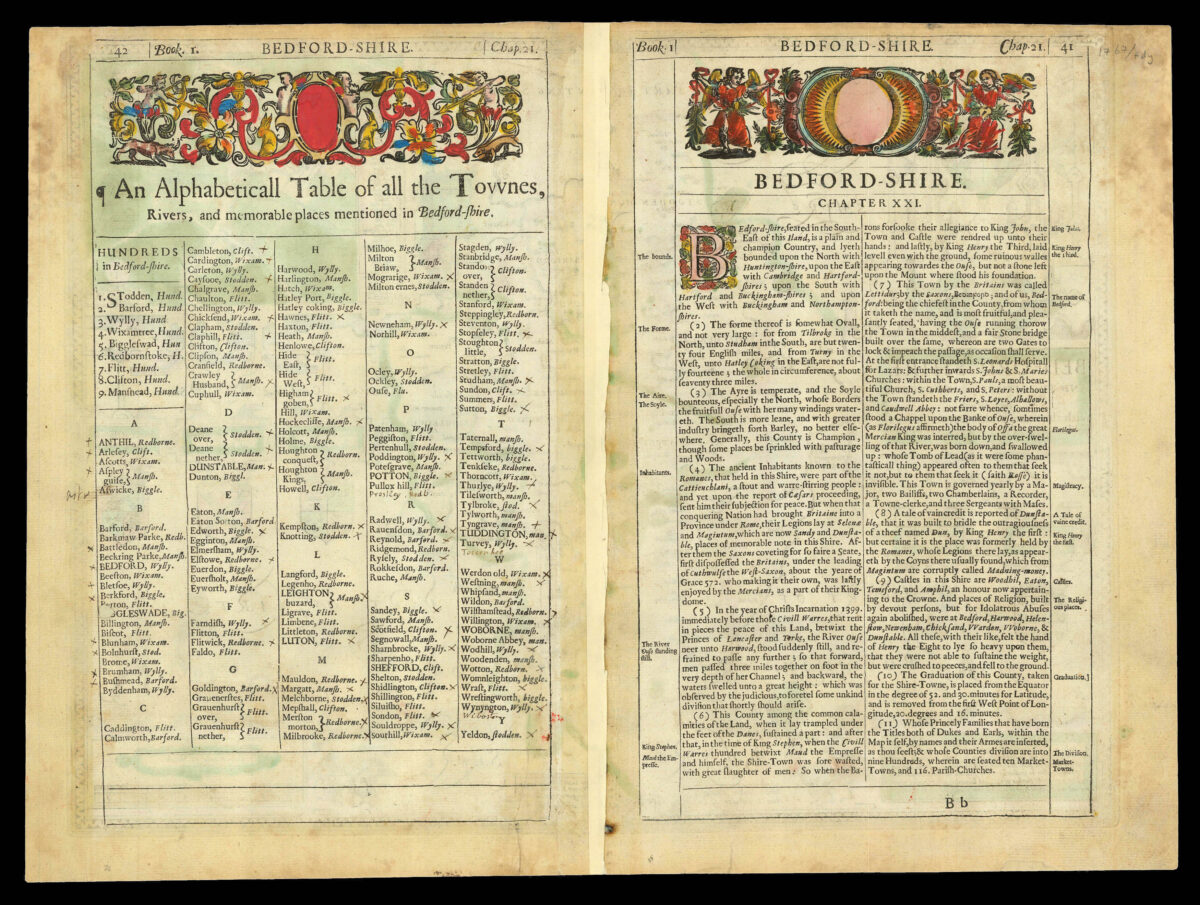 42
Book. 1.
BEDFORD-SHIRE.
Chap. 21.
¶ An Alphabeticall Table of all the Townes,
Rivers, and memorable places mentioned in Bedford-shire.
HUNDREDS
in Bedford-shire.
1. Stodden, Hund.
2. Barford, Hund.
3. Wylly, Hund
4. Wixamtree, Hund.
5. Bigglefwad, Hun
6. Redbornstoke, H.
7. Flitt, Hund.
8. Clifton, Hund.
9. Manshead, Hund.
A
ANTHIL, Redborne.
Arlesey, Clift.
Ascotts, Wixam.
Aspley
guise, } Mansh.
Aswicke, Biggle.
B
Barford, Barford.
Barkmaw Parke, Redb.
Battledon, Mansh.
Beckring Parke, Mansh.
BEDFORD, Wylly.
Beeston, Wixam.
Bletsoe, Wylly.
Berkford, Biggle.
Barton, Flitt.
GLESWADE, Big.
Billington, Mansh.
Biscot, Flitt.
Blunham, Wixam.
Bolnhurst, Stod.
Brome, Wixam.
Brumham, Wylly.
Bushmead, Barford.
Byddenham, Wylly.
C
Caddington, Flitt.
Calmworth, Barford.
Cambleton, Clift.
Cardington, Wixam.
Carleton, Wylly.
Caysooe, Stodden.
Chalgrave, Mansh.
Chaulton, Flitt.
Chellington, Wylly.
Chicksend, Wixam.
Clapham, Stodden.
Claphill, Flitt.
Clifton, Clifton.
Clipson, Mansh.
Cranfield, Redborne.
Crawley
Husband, } Mansh.
Cuphull, Wixam.
D
Deane
over, } Stodden.
Deane
nether, } Stodden.
DUNSTABLE, Man.
Dunton, Biggl.
E
Eaton, Mansh.
Eaton Socton, Barford
Edworth, Biggle.
Egginton, Mansh.
Elmersham, Wylly.
Elstowe, Redborne.
Euerdon, Biggle.
Euersholt, Mansh.
Eyworth, Biggle.
F
Farndish, Wylly.
Flitton, Flitt.
Flitwicke, Redborne.
Faldo, Flitt.
G
Goldington, Barford.
Grauenerstes, Flitt.
Grauenhurst
over, } Flitt.
Grauenhurst
nether, } Flitt.
H
Harwood, Wylly.
Harlington, Mansh.
Hatch, Wixam.
Hatley Port, Biggle.
Hatley coking, Biggle.
Hawnes, Flitt.
Haxton, Flitt.
Heath, Mansh.
Henlowe, Clifton.
Hide
East, } Flitt.
Hide
West, } Flitt.
Higham
goben, } Flitt.
Hill, Wixam.
Hockecliffe, Mansh.
Holcott, Mansh.
Holme, Biggle.
Houghton
conquest, } Redborn.
Houghton
Kings, } Mansh.
Howell, Clifton.
K
Kempston, Redborn.
Knotting, Stodden.
L
Langford, Biggle.
Legenho, Redborne.
LEIGHTON
buzard, } Mansh.
Ligrave, Flitt.
Limbene, Flitt.
Littleton, Redborne.
LUTON, Flitt.
M
Mauldon, Redborne.
Margatt, Mansh.
Melchborne, Stodden.
Mepshall, Clifton.
Merston
morton, } Redborne.
Milbrooke, Redborne.
Milhoe, Biggle.
Milton
Briaw, } Mansh.
Mograrige, Wixam.
Milton ernes, Stodden.
N
Newneham, Wylly.
Norhill, Wixam.
O
Ockley, Wylly.
Ockley, Stodden.
Ouse, Flu.
P
Patenham, Wylly
Peggiston, Flitt.
Pertenhull, Stodden.
Poddington, Wylly
Potesgrave, Mansh.
POTTON, Biggle.
Pullox hill, Flitt.
R
Radwell, Wylly.
Rauensdon, Barford.
Reynold, Barford.
Ridgemond, Redborn.
Rysely, Stodden.
Rokkesdon, Barford.
Ruche, Mansh.
S
Sandey, Biggle.
Sawford, Mansh.
Scotsield, Clifton.
Segnowall, Mansh.
Sharnbrocke, Wylly.
Sharpenho, Flitt.
SHEFFORD, Clift.
Shelton, Stodden.
Shidlington, Clifton.
Shillington, Flitt.
Siluisho, Flitt.
Sondon, Flitt.
Souldroppe, Wylly.
Southill, Wixam.
Stagden, Wylly.
Stanbridge, Mansh.
Standon
over, } Clifton.
Standen
nether, } Clifton.
Stanford, Wixam.
Steppingley, Redborn.
Steventon, Wylly.
Stopseley, Flitt.
Stoughton
little, } Stodden.
Stratton, Biggle.
Stretley, Flitt.
Studham, Mansh.
Sundon, Clift.
Summers, Flitt.
Sutton, Biggle.
T
Taternall, mansh.
Tempsford, biggle.
Tettworth, biggle.
Tenkseke, Redborne.
Thorncott, Wixam.
Thurlye, Wylly.
Tilesworth, mansh.
Tylbroke, stod.
Tylworth, mansh.
Tyngrave, mansh.
TUDDINGTON, man
Turvey, Wylly.
W
Werdon old, Wixam.
Westning, mansh.
Whipsand, mansh.
Wildon, Barford.
Wilshamstead, Redborn.
Willington, Wixam.
WOBORNE, mansh.
Woborne Abbey, man.
Wodhill, Wylly.
Woodenden, mansh.
Wotton, Redborne.
Womnleighton, biggle.
Wrast, Flitt.
Wrestingworth, biggle.
Wynyngton, Wylly
Y
Yeldon, stodden.
Book. 1
BEDFORD-SHIRE.
Chap. 21.
41
BEDFORD-SHIRE.
CHAPTER XXI.
The bounds.
The Forme.
The Aire.
The Soyle.
Inhabitants.
The River
Ouse standing
still.
King Stephen.
Maud the Em-
presse.
Bedford-shire, seated in the South-
East of this Iland, is a plain and
champion Country, and lyeth
bounded upon the North with
Huntington-shire, upon the East
with Cambridge and Hartford-
shires; upon the South with
Hartford and Buckingham-shires; and upon
the West with Buckingham and Northampton-
shires.
(2) The forme thereof is somewhat Ovall,
and not very large: for from Tilbroke in the
North, unto Studham in the South, are but twen-
ty four English miles, and from Turny in the
West, unto Hatley Coking in the East, are not ful-
ly fourteene; the whole in circumference, about
seaventy three miles.
(3) The Ayre is temperate, and the Soyle
bounteous, especially the North, whose Borders
the fruitfull Ouse with her many windings water-
eth. The South is more leane, and with greater
industry bringeth forth Barley, no better else-
where. Generally, this County is Champion,
though some places be sprinkled with pasturage
and Woods.
(4) The ancient Inhabitants known to the
Romanes, that held in this Shire, were part of the
Cattieuchlani, a stout and warre-stirring people;
and yet upon the report of Cæsars proceeding,
sent him their subjection for peace. But when that
conquering Nation had brought Britaine into a
Province under Rome, their Legions lay at Selenæ
and Magintum, which are now Sandy and Dunsta-
ble, places of memorable note in this Shire. Af-
ter them the Saxons coveting for so faire a Seate,
first dispossessed the Britains, under the leading
of Cuthwulfe the West-Saxon, about the yeare of
Grace 572. who making it their own, was lastly
enjoyed by the Mercians, as a part of their King-
dome.
(5) In the year of Christs Incarnation 1399.
immediately before those Civill Warres, that rent
in pieces the peace of this Land, betwixt the
Princes of Lancaster and Yorke, the River Ouse
neer unto Harwood, stood suddenly still, and re-
frained to passe any further; so that forward,
men passed three miles together on foot in the
very depth of her Channel; and backward, the
waters swelled unto a great height: which was
observed by the judicious, to foretel some unkind
division that shortly should arise.
(6) This County among the common cala-
mities of the Land, when it lay trampled under
the feet of the Danes, sustained a part: and after
that, in the time of King Stephen, when the Civill
Warres thundred betwixt Maud the Empresse
and himself, the Shire-Town was sore wasted,
with great slaughter of men: So when the Ba-
rons forsooke their allegiance to King John, the
Town and Castle were rendred up unto their
hands: and lastly, by King Henry the Third, laid
levell even with the ground, some ruinous walles
appearing towards the Ouse, but not a stone left
upon the Mount where stood his foundation.
(7) This Town by the Britains was called
Lettidur, by the Saxons, Bedanford; and of us, Bed-
ford: being the chiefest in the County, from whom
it taketh the name, and is most fruitful, and plea-
santly seated, having the Ouse running thorow
the Town in the middest, and a fair Stone bridge
built over the same, whereon are two Gates to
lock & impeach the passage, as occasion shall serve.
At the first entrance standeth S. Leonards Hospitall
for Lazars: & further inwards S. Johns & S. Maries
Churches: within the Town, S. Pauls, a most beau-
tiful Church, S. Cuthberts, and S. Peters: without
the Town standeth the Friers, S. Loyes, Alhallows,
and Caudwell Abbey: not farre whence, somtimes
stood a Chapel upon the Banke of Ouse, wherein
(as Florilegus affirmeth) the body of Offa the great
Mercian King was interred, but by the over-swel-
ling of that River, was born down, and swallowed
up: whose Tomb of Lead (as it were some phan-
tasticall thing) appeared often to them that seek
it not, but to them that seek it (saith Rosse) it is
invisible. This Town is governed yearly by a Ma-
jor, two Bailiffs, two Chamberlains, a Recorder,
a Towne-Clerke, and three Sergeants with Mases.
(8) A tale of vaincredit is reported of Dunsta-
ble, that it was built to bridle the outragiousness
of a theef named Dun, by King Henry the first:
but certaine it is the place was formerly held by
the Romanes, whose Legions there lay, as appear-
eth by the Coyns there usually found, which from
Magintum are corruptly called Madning-money.
(9) Castles in this Shire are Woodhil, Eaton,
Temesford, and Amphil, an honour now appertain-
ing to the Crowne. And places of Religion, built
by devout persons, but for Idolatrous Abuses
again abolished, were at Bedford, Harwood, Helen-
stow, Newenham, Chicksand, Wardon, Woborne, &
Dunstable. All these, with their like, felt the hand
of Henry the Eight to lye so heavy upon them,
that they were not able to sustaine the weight,
but were crushed to peeces, and fell to the ground.
(10) The Graduation of this County, taken
for the Shire-Towne, is placed from the Equator
in the degree of 52. and 30. minutes for Latitude,
and is removed from the first West Point of Lon-
gitude, 20. degrees and 16. minutes.
(11) Whose Princely Families that have born
the Titles both of Dukes and Earls, within the
Map it self, by names and their Armes are inserted,
as thou seest: & whose Counties division are into
nine Hundreds, wherein are seated ten Market-
Towns, and 116. Parish-Churches.
King John.
King Henry
the third.
The name of
Bedford.
Florilegus.
Magistracy.
A Tale of
vaine credit.
King Henry
the first.
Castles.
The Religi-
ous places.
Graduation.
The Division.
Market-
Towns.
B b